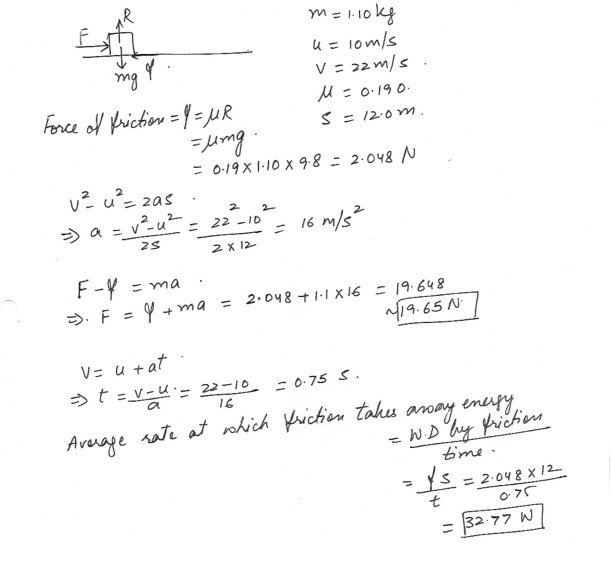 R
F
mg φ.
m = 1.10 kg
u = 10 m/s
V = 22 m/s.
μ = 0.190.
s = 12.0 m.
Force of friction = φ = μR
= μmg.
= 0.19 x 1.10 x 9.8 = 2.048 N
v² - u² = 2as.
⇒ a = (v² - u²)/2s = (22² - 10²)/(2 x 12) = 16 m/s²
F - φ = ma.
⇒. F = φ + ma = 2.048 + 1.1 x 16 = 19.648
~19.65 N
V = u + at.
⇒ t = (v - u)/a = (22 - 10)/16 = 0.75 s.
Average rate at which friction takes away energy
= W.D by friction/time.
= φs/t = (2.048 x 12)/0.75
= 32.77 W